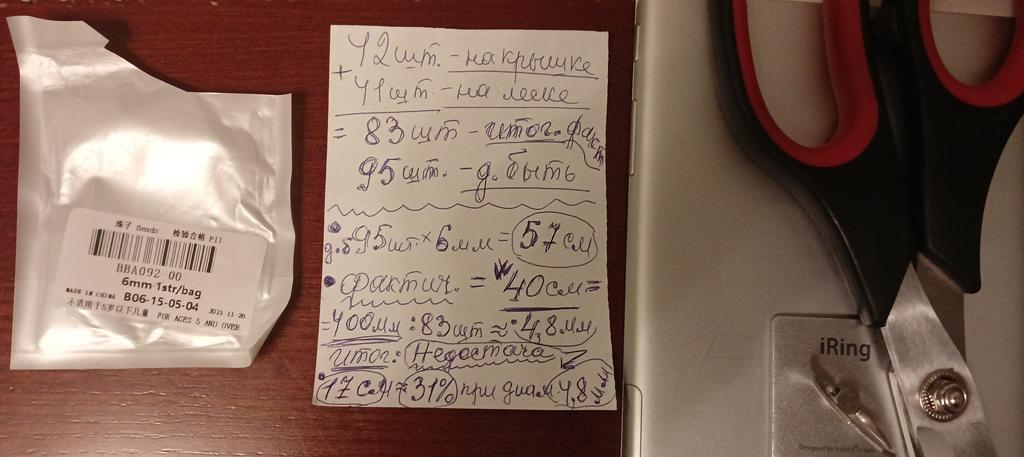 珠子 Beads 检验合格 P11
BBA092-00
6mm 1str/bag
MADE IN CHINA B06-15-05-04 2021-11-26
不适用于5岁以下儿童 FOR AGES 5 AND OVER
42шт. - на крышке
+
41шт. - на леске
= 83шт - итог. факт.
95шт. - д. быть
д.б 95шт. × 6мм = 57 см
• фактич. = 40см =
= 400мм : 83шт ≈ 4,8мм
итог: Недостача
• 17см ≈ 31% при диам. 4,8мм
iRing